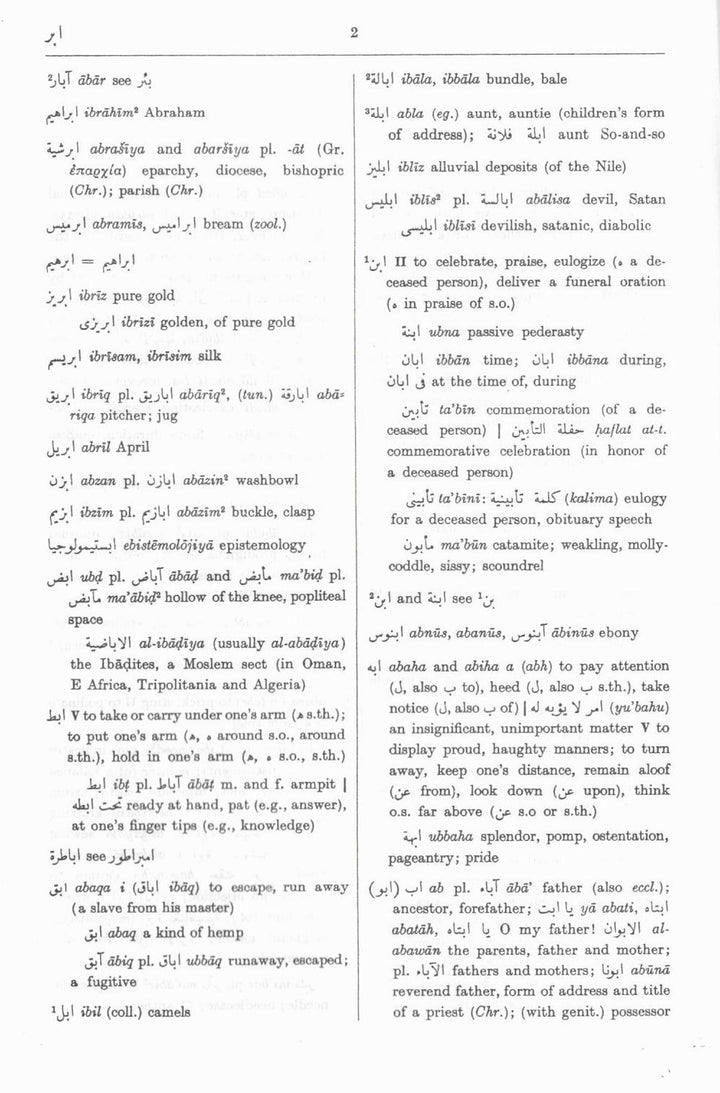 ابر
2
آبار² ābār see بئر
ابراهيم ibrāhīm² Abraham
ابرشية abrašīya and abaršīya pl. -āt (Gr.
ἐπαρχία) eparchy, diocese, bishopric
(Chr.); parish (Chr.)
ابرميس abramīs, ابراميس bream (zool.)
ابرهيم = ابراهيم
ابريز ibrīz pure gold
ابريزى ibrīzī golden, of pure gold
ابريسم ibrīsam, ibrīsim silk
ابريق ibrīq pl. اباريق abārīq², (tun.) ابارقة abā-
riqa pitcher; jug
ابريل abril April
ابزن abzan pl. ابازن abāzin² washbowl
ابزيم ibzīm pl. ابازيم abāzīm² buckle, clasp
ابستيمولوجيا ebistēmolōjiyā epistemology
ابض ubḍ pl. آباض ābāḍ and مأبض ma'biḍ pl.
مآبض ma'ābiḍ² hollow of the knee, popliteal
space
الاباضية al-ibāḍīya (usually al-abāḍīya)
the Ibāḍites, a Moslem sect (in Oman,
E Africa, Tripolitania and Algeria)
ابط V to take or carry under one's arm (ه s.th.);
to put one's arm (ه, ه around s.o., around
s.th.), hold in one's arm (ه, ه s.o., s.th.)
ابط ibṭ pl. آباط ābāṭ m. and f. armpit |
تحت ابطه ready at hand, pat (e.g., answer),
at one's finger tips (e.g., knowledge)
اباطرة see امبراطور
ابق abaqa i (اباق ibāq) to escape, run away
(a slave from his master)
ابق abaq a kind of hemp
آبق ābiq pl. اباق ubbāq runaway, escaped;
a fugitive
ابل¹ ibil (coll.) camels
ابالة² ibāla, ibbāla bundle, bale
ابلة³ abla (eg.) aunt, auntie (children's form
of address); ابلة فلانة aunt So-and-so
ابليز iblīz alluvial deposits (of the Nile)
ابليس iblīs² pl. ابالسة abālisa devil, Satan
ابليسى iblīsī devilish, satanic, diabolic
ابن¹ II to celebrate, praise, eulogize (ه a de-
ceased person), deliver a funeral oration
(ه in praise of s.o.)
ابنة ubna passive pederasty
ابان ibbān time; ابان ibbāna during,
فى ابان at the time of, during
تأبين ta'bīn commemoration (of a de-
ceased person) | حفلة التأبين ḥaflat at-t.
commemorative celebration (in honor of
a deceased person)
تأبينى ta'bīnī: كلمة تأبينية (kalima) eulogy
for a deceased person, obituary speech
مأبون ma'būn catamite; weakling, molly-
coddle, sissy; scoundrel
ابن² and ابنة see بن¹
ابنوس abnūs, abanūs, آبنوس ābinūs ebony
ابه abaha and abiha a (abh) to pay attention
(ل, also ب to), heed (ل, also ب s.th.), take
notice (ل, also ب of) | امر لا يؤبه له (yu'bahu)
an insignificant, unimportant matter V to
display proud, haughty manners; to turn
away, keep one's distance, remain aloof
(عن from), look down (عن upon), think
o.s. far above (عن s.o or s.th.)
ابهة ubbaha splendor, pomp, ostentation,
pageantry; pride
اب (ابو) ab pl. آباء ābā' father (also eccl.);
ancestor, forefather; يا ابت yā abati, ابتاه
abatāh, يا ابتاه O my father! الابوان al-
abawān the parents, father and mother;
pl. الآباء fathers and mothers; ابونا abūnā
reverend father, form of address and title
of a priest (Chr.); (with genit.) possessor